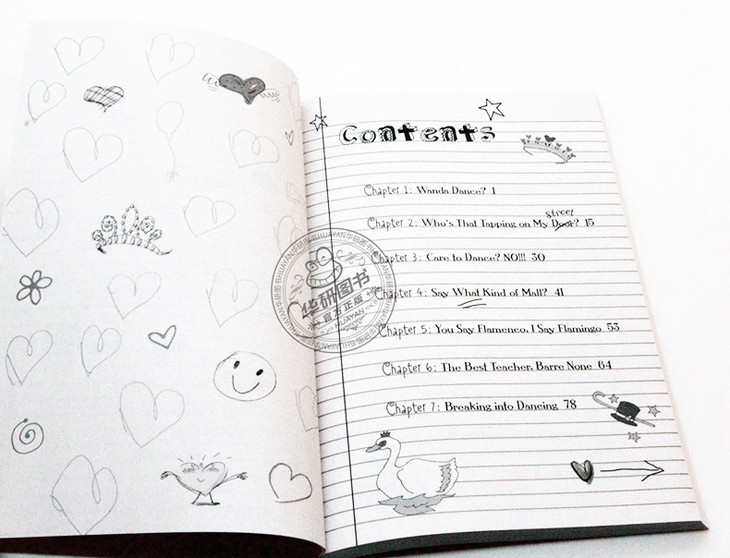 Contents
Chapter 1: Wanda Dance? 1
street
Chapter 2: Who's That Tapping on My Door? 15
Chapter 3: Care to Dance? NO!!! 30
Chapter 4: Say What Kind of Mall? 41
Chapter 5: You Say Flamenco, I Say Flamingo 53
Chapter 6: The Best Teacher, Barre None 64
Chapter 7: Breaking into Dancing 78
华研图书
官方正版
HUAYAN